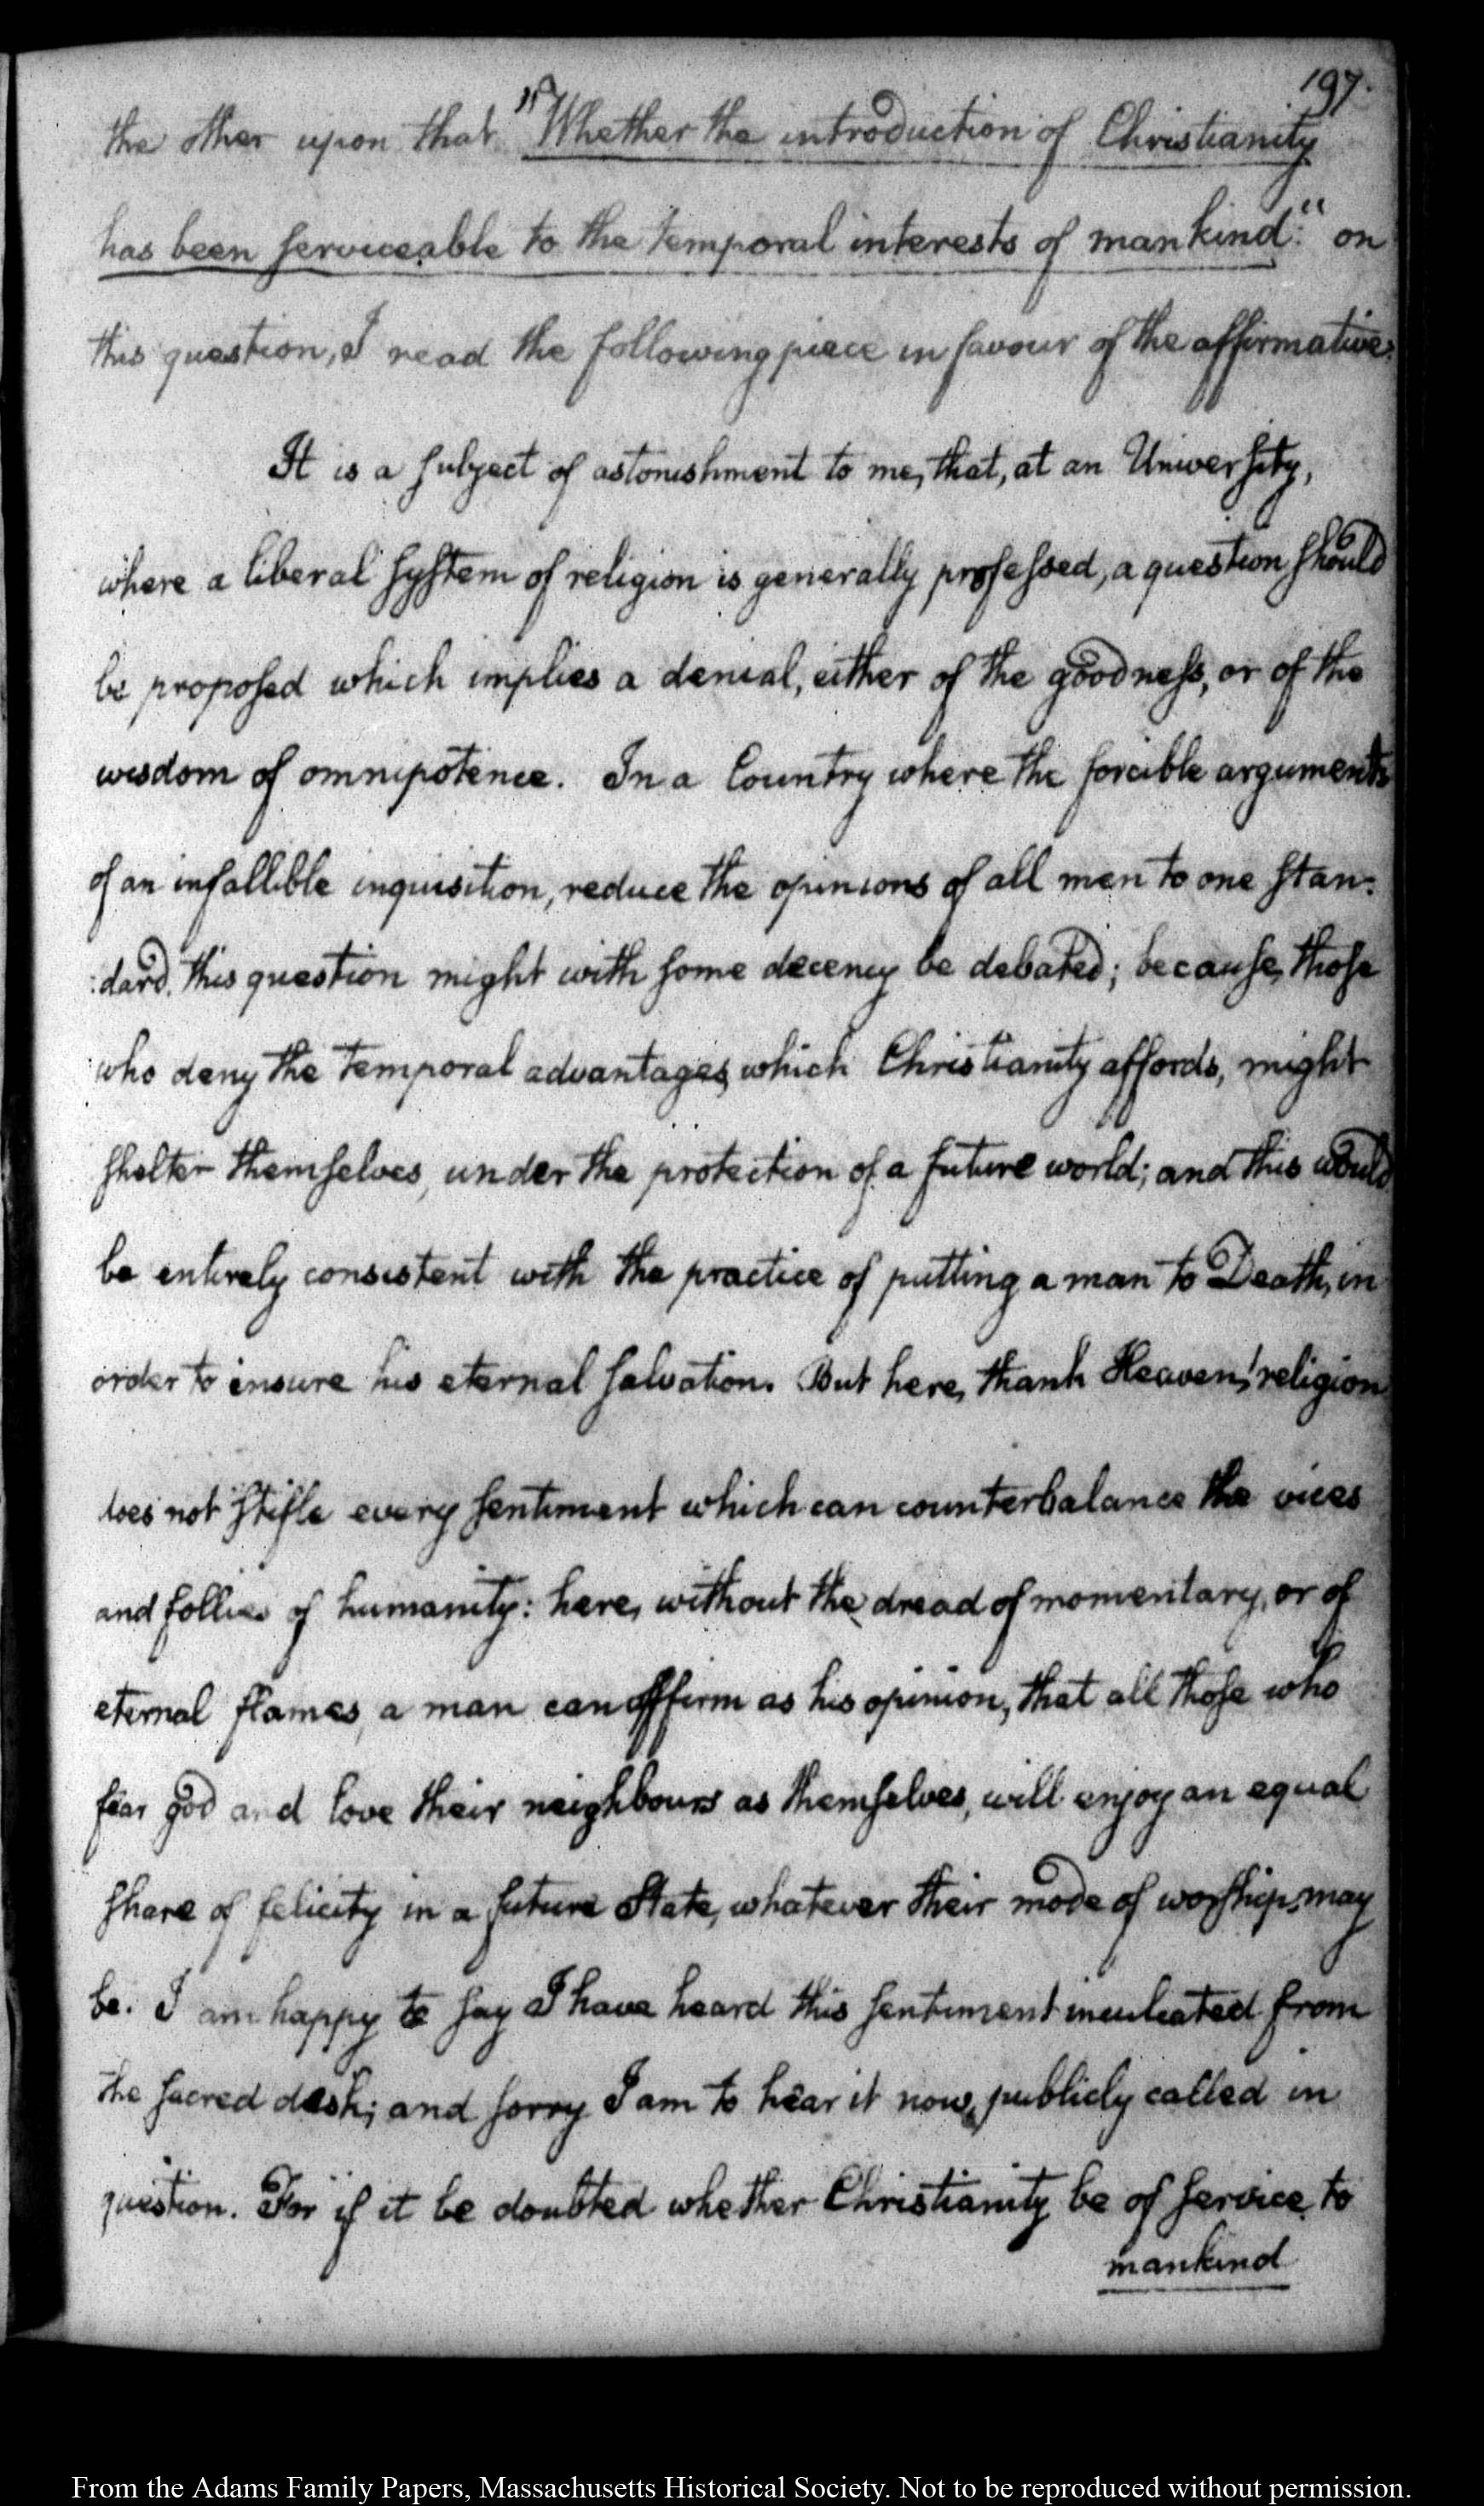 197.
the other upon that "Whether the introduction of Christianity
has been serviceable to the temporal interests of mankind." on
this question, I read the following piece in favour of the affirmative.
It is a subject of astonishment to me, that, at an University,
where a liberal system of religion is generally professed, a question should
be proposed which implies a denial, either of the goodness, or of the
wisdom of omnipotence. In a Country where the forcible arguments
of an infallible inquisition, reduce the opinions of all men to one stan:
:dard, this question might with some decency be debated; because, those
who deny the temporal advantages, which Christianity affords, might
shelter themselves, under the protection of a future world; and this would
be entirely consistent with the practice of putting a man to Death, in
order to insure his eternal salvation. But here, thank Heaven! religion
does not stifle every sentiment which can counterbalance the vices
and follies of humanity: here, without the dread of momentary, or of
eternal flames, a man can affirm as his opinion, that all those who
fear god and love their neighbours as themselves, will enjoy an equal
share of felicity in a future State, whatever their mode of worship, may
be. I am happy to say I have heard this sentiment inculcated from
the sacred desk; and sorry I am to hear it now, publicly called in
question. For if it be doubted whether Christianity be of service to
mankind
From the Adams Family Papers, Massachusetts Historical Society. Not to be reproduced without permission.